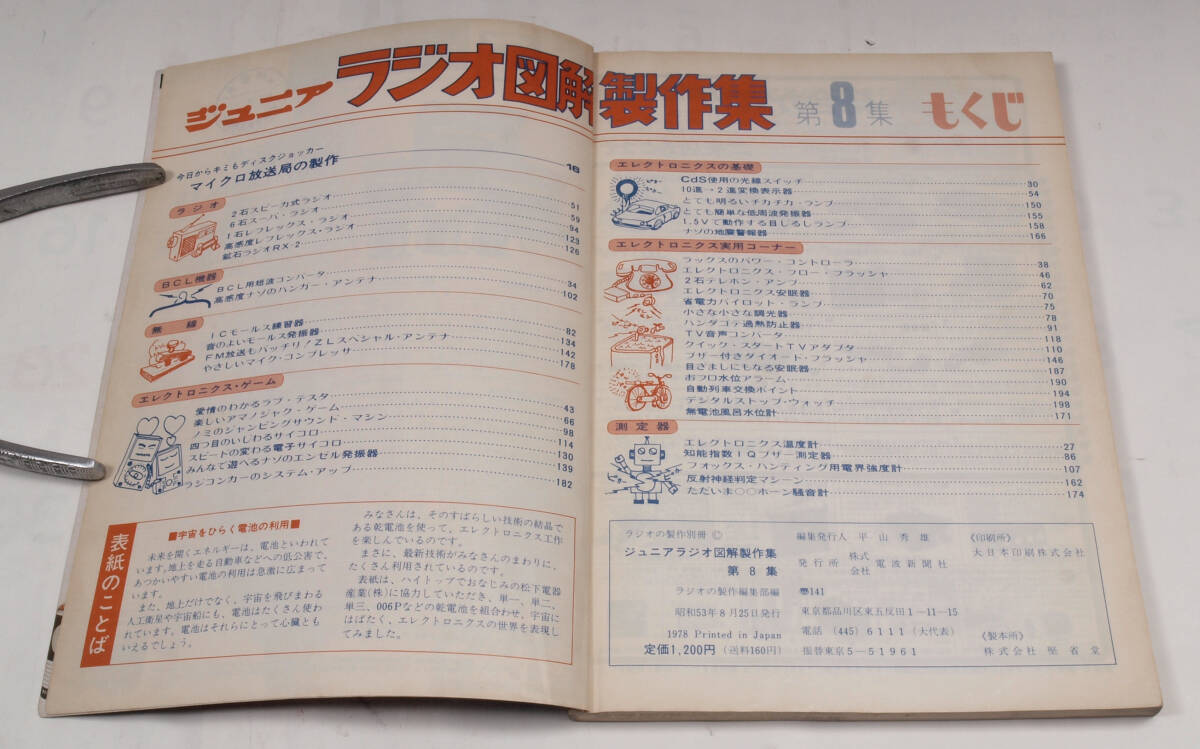 ジュニア ラジオ図解製作集 第8集 もくじ
今日からキミもディスクジョッカー
マイクロ放送局の製作 16
ラジオ
2石スピーカ式ラジオ 51
6石スーパ・ラジオ 59
1石レフレックス・ラジオ 94
高感度レフレックス・ラジオ 123
鉱石ラジオRX2 126
BCL機器
BCL用短波コンバータ 34
高感度ナゾのハンガー・アンテナ 102
無線
ICモールス練習器 82
音のよいモールス発振器 134
FM放送もバッチリ!ZLスペシャル・アンテナ 142
やさしいマイク・コンプレッサ 178
エレクトロニクス・ゲーム
愛情のわかるラブ・テスタ 43
楽しいアマノジャク・ゲーム 66
ノミのジャンピングサウンド・マシン 98
四つ目のいじわるサイコロ 114
スピードの変わる電子サイコロ 130
みんなで遊べるナゾのエンゼル発振器 139
ラジコンカーのシステム・アップ 182
表紙のことば
■宇宙をひらく電池の利用■
未来を開くエネルギーは、電池といわれて
います。地上を走る自動車などへの低公害で、
あつかいやすい電池の利用は急激に広まって
います。
また、地上だけでなく、宇宙を飛びまわる
人工衛星や宇宙船にも、電池はたくさん使わ
れています。電池はそれらにとって心臓とも
いえるでしょう。
みなさんは、そのすばらしい技術の結晶で
ある乾電池を使って、エレクトロニクス工作
を楽しんでいるのです。
まさに、最新技術がみなさんのまわりに、
たくさん利用されているのです。
表紙は、ハイトップでおなじみの松下電器
産業(株)に協力していただき、単一、単二、
単三、006Pなどの乾電池を組合わせ、宇宙に
はばたく、エレクトロニクスの世界を表現し
てみました。
エレクトロニクスの基礎
CdS使用の光線スイッチ 30
10進→2進変換表示器 54
とても明るいチカチカ・ランプ 150
とても簡単な低周波発振器 155
1.5Vで動作する目じるしランプ 158
ナゾの地震警報器 166
エレクトロニクス実用コーナー
ラックスのパワー・コントローラ 38
エレクトロニクス・フロー・フラッシャ 46
2石テレホン・アンプ 62
エレクトロニクス安眠器 70
省電力パイロット・ランプ 75
小さな小さな調光器 78
ハンダゴテ過熱防止器 91
TV音声コンバータ 118
クイック・スタートTVアダプタ 110
ブザー付きダイオード・フラッシャ 146
目さましにもなる安眠器 187
おフロ水位アラーム 190
自動列車交換ポイント 194
デジタルストップ・ウォッチ 198
無電池風呂水位計 171
測定器
エレクトロニクス温度計 27
知能指数IQブザー測定器 86
フォックス・ハンティング用電界強度計 107
反射神経判定マシーン 162
ただいま○○ホーン騒音計 174
ラジオの製作別冊 ©
ジュニアラジオ図解製作集
第8集
ラジオの製作編集部編
昭和53年8月25日発行
1978 Printed in Japan
定価1,200円 (送料160円)
編集発行人 平山秀雄
発行所 株式会社 電波新聞社
141
東京都品川区東五反田1-11-15
電話 (445) 6111 (大代表)
振替東京5-51961
《印刷所》
大日本印刷株式会社
《製本所》
株式会社 堅省堂